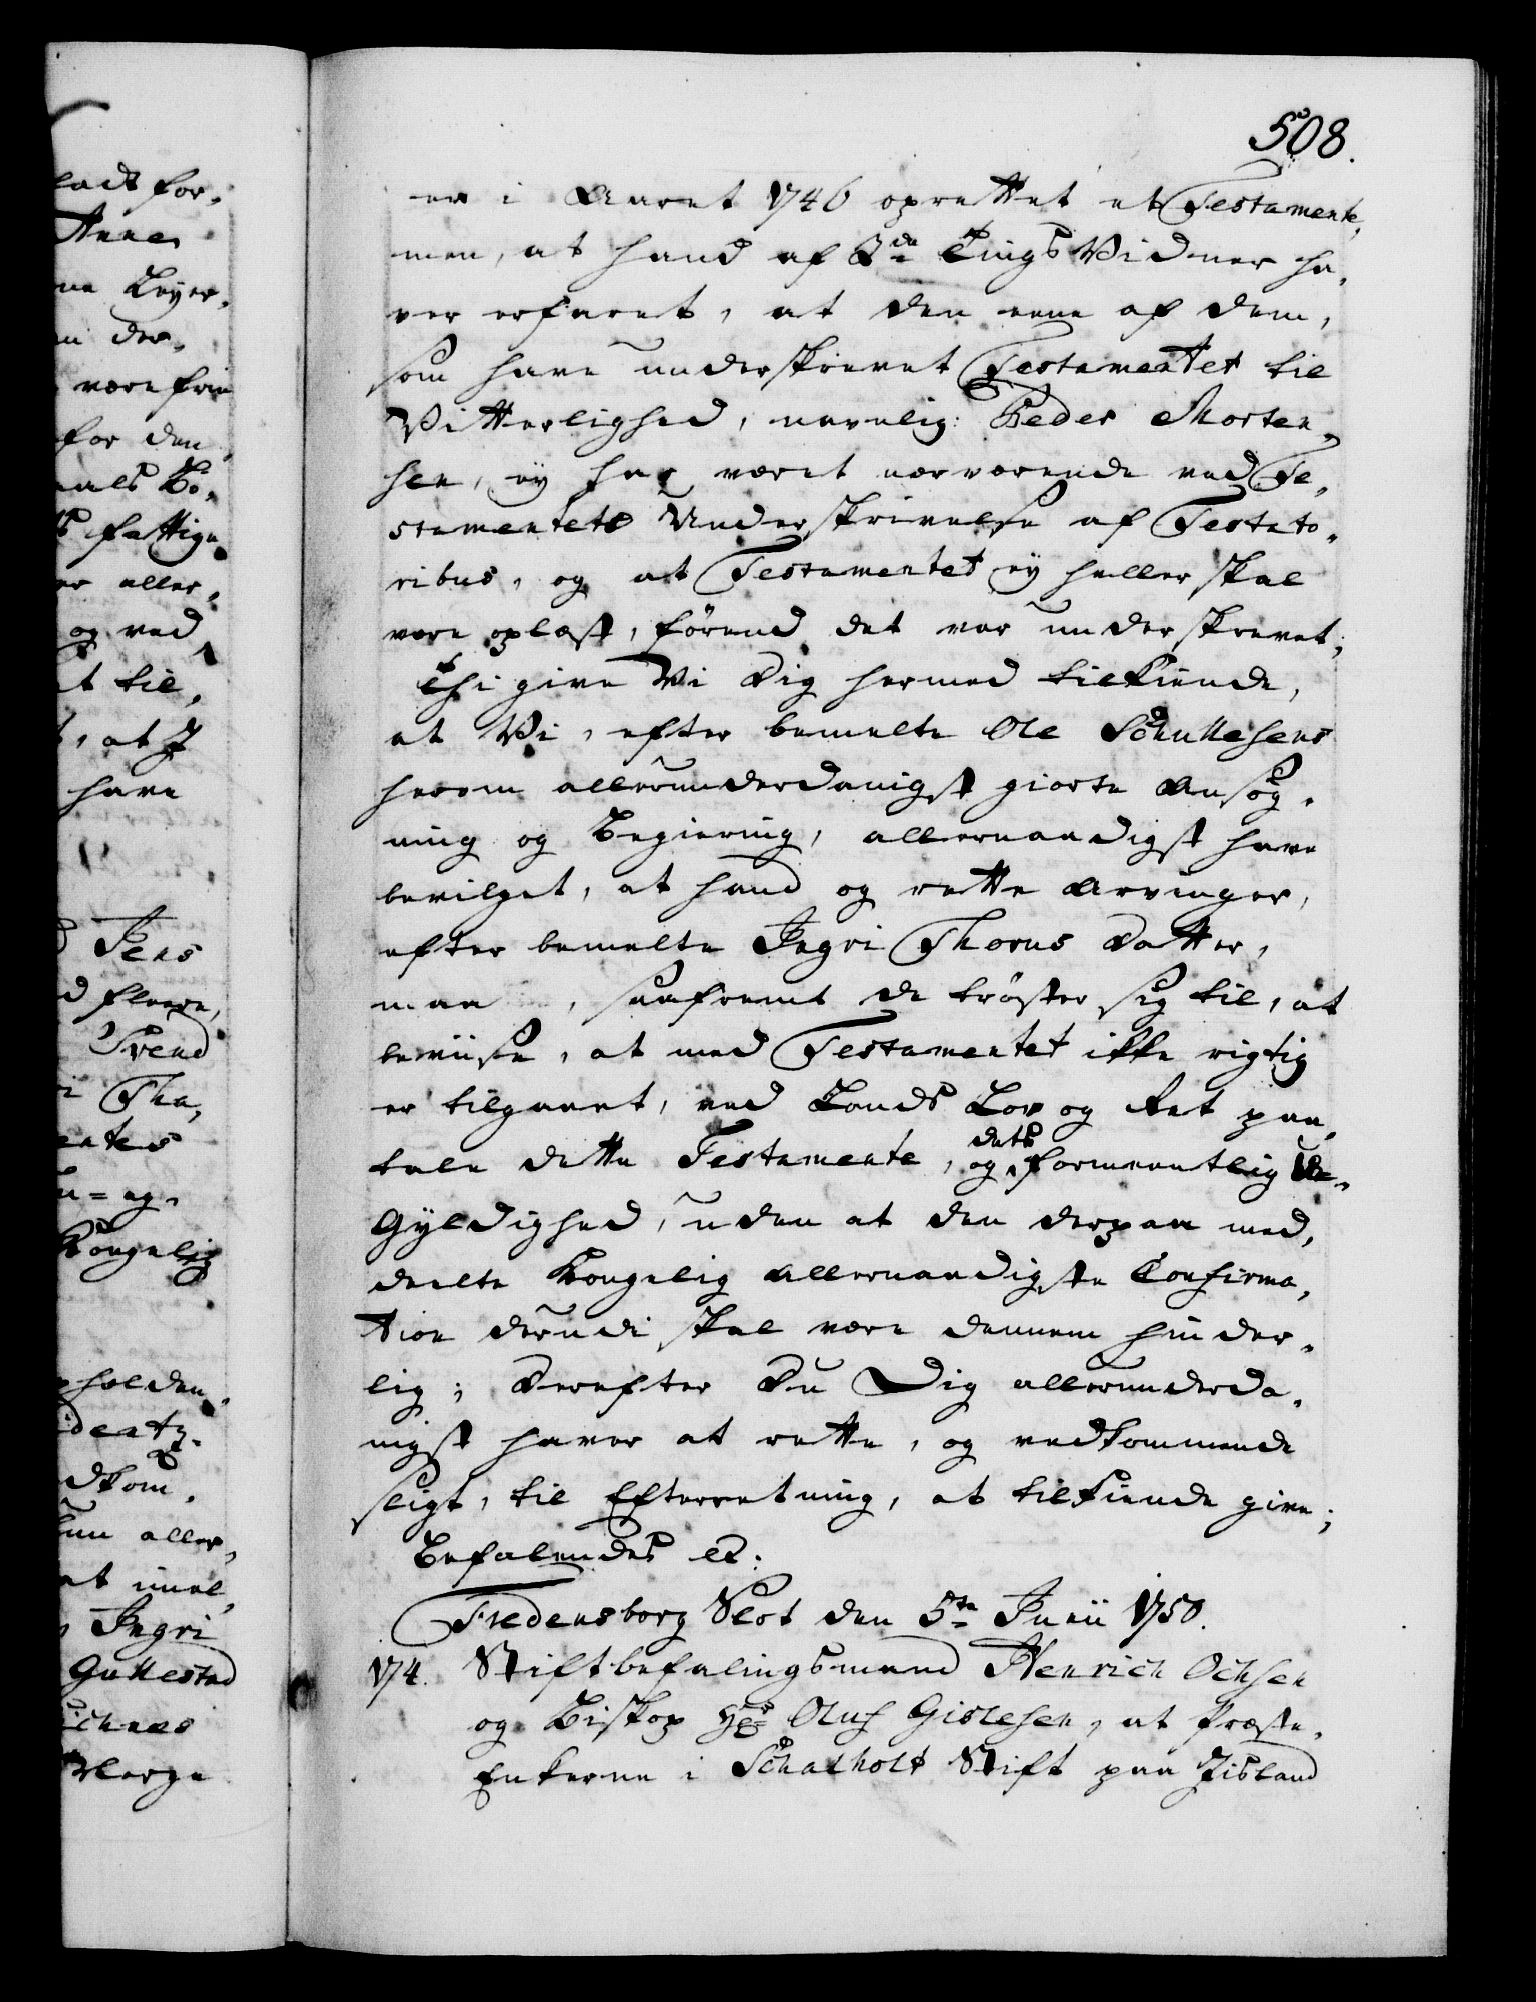 508.
er i Aaret 1746 oprettet et Testamente,
men, at hand af 2de Tings Vidner ha-
ver erfaret, at den eene af dem,
som have underskrevet Testamentet til
Vitterlighed, navnlig: Peder Morten-
sen, ey har været nærværende ved Te-
stamentets Underskrivelse af Testato-
ribus, og at Testamentet ey heller skal
være oplæst, førend det var underskrevet;
Thi give Vi Dig hermed tilkiende,
at Vi, efter bemelte Ole Schullesens
herom allerunderdanigst giorte Ansøg-
ning og Begiering, allernaadigst have
bevilget, at hand og rette Arvinger,
efter bemelte Ingri Thorus Datter,
maa, saafremt de trøster sig til, at
beviise, at med Testamentet ikke rigtig
er tilgaaet, ved Lands Lov og Ret paa-
tale dette Testamente, og dets formeentlig U-
Gyldighed, uden at den derpaa med-
deelte Kongelig Allernaadigste Confirma-
tion derudi skal være dennem hinder-
lig; Derefter Du Dig allerunderda-
nigst haver at rette, og vedkommende
sligt, til Efterretning, at tilkiende give;
Befalendes etc:
Fredensborg Slot den 5te Junii 1750.
174. Stiftbefalingsmand Henrich Ochsen
og Biskop Hr: Oluf Gislesen, at Præste-
Enkerne i Schalholt Stift paa Iisland
ladt for-
Anne
ne Leyer-
der-
være frie
for den
fattige
er aller-
og ved
at til,
, at I
have
Jens
d fleere,
Svend
i Tho-
entes
Kongelig
holden
dkom-
aller-
Ingri
Gullestad